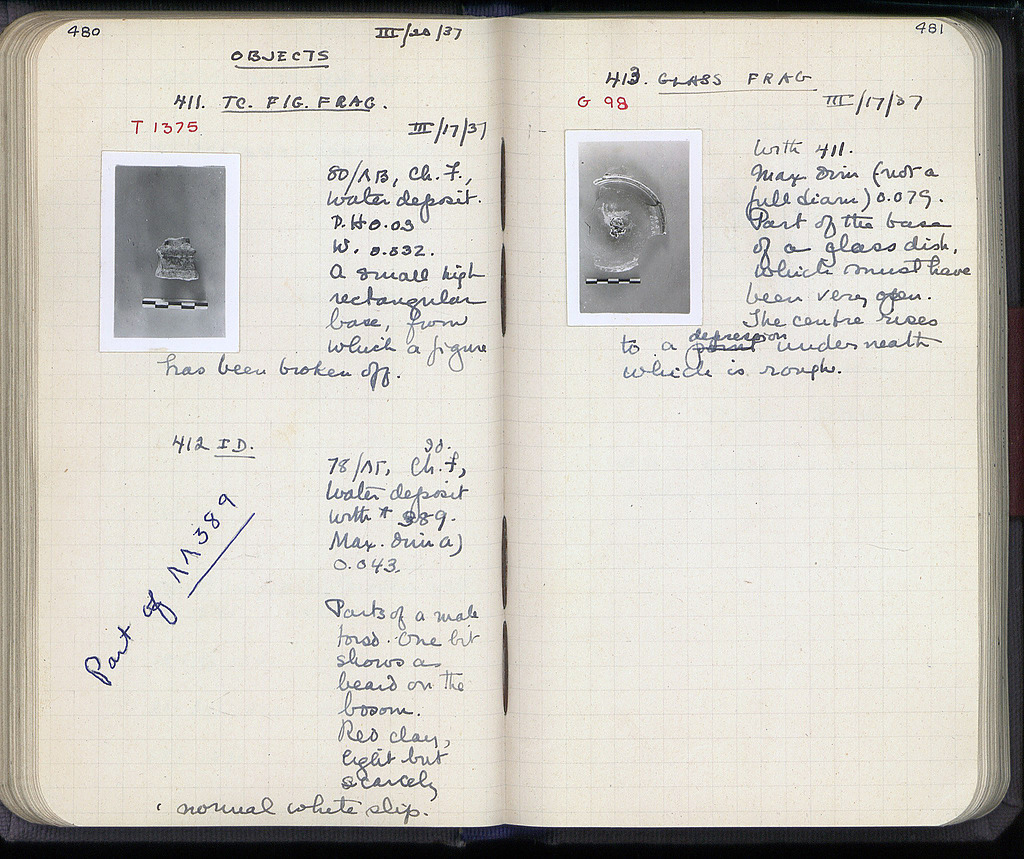 480
III/20/37
OBJECTS
411. TC. FIG. FRAG.
T 1375
III/17/37
80/ΛB, Ch. F.,
water deposit.
P. H 0.03
W. 0.032.
A small high
rectangular
base, from
which a figure
has been broken off.
412 ID.
do.
78/ΛΓ, Ch. F.,
water deposit
with # 389.
Max. dim a)
0.043.
Part of ΛΛ389
Parts of a male
torso. One bit
shows a
beard on the
bosom.
Red clay,
light but
scarcely
normal white slip.
481
413. GLASS FRAG
G 98
III/17/37
With 411.
Max dim (not a
full diam) 0.079.
Part of the base
of a glass dish,
which must have
been very open.
The centre rises
to a point depression underneath
which is rough.